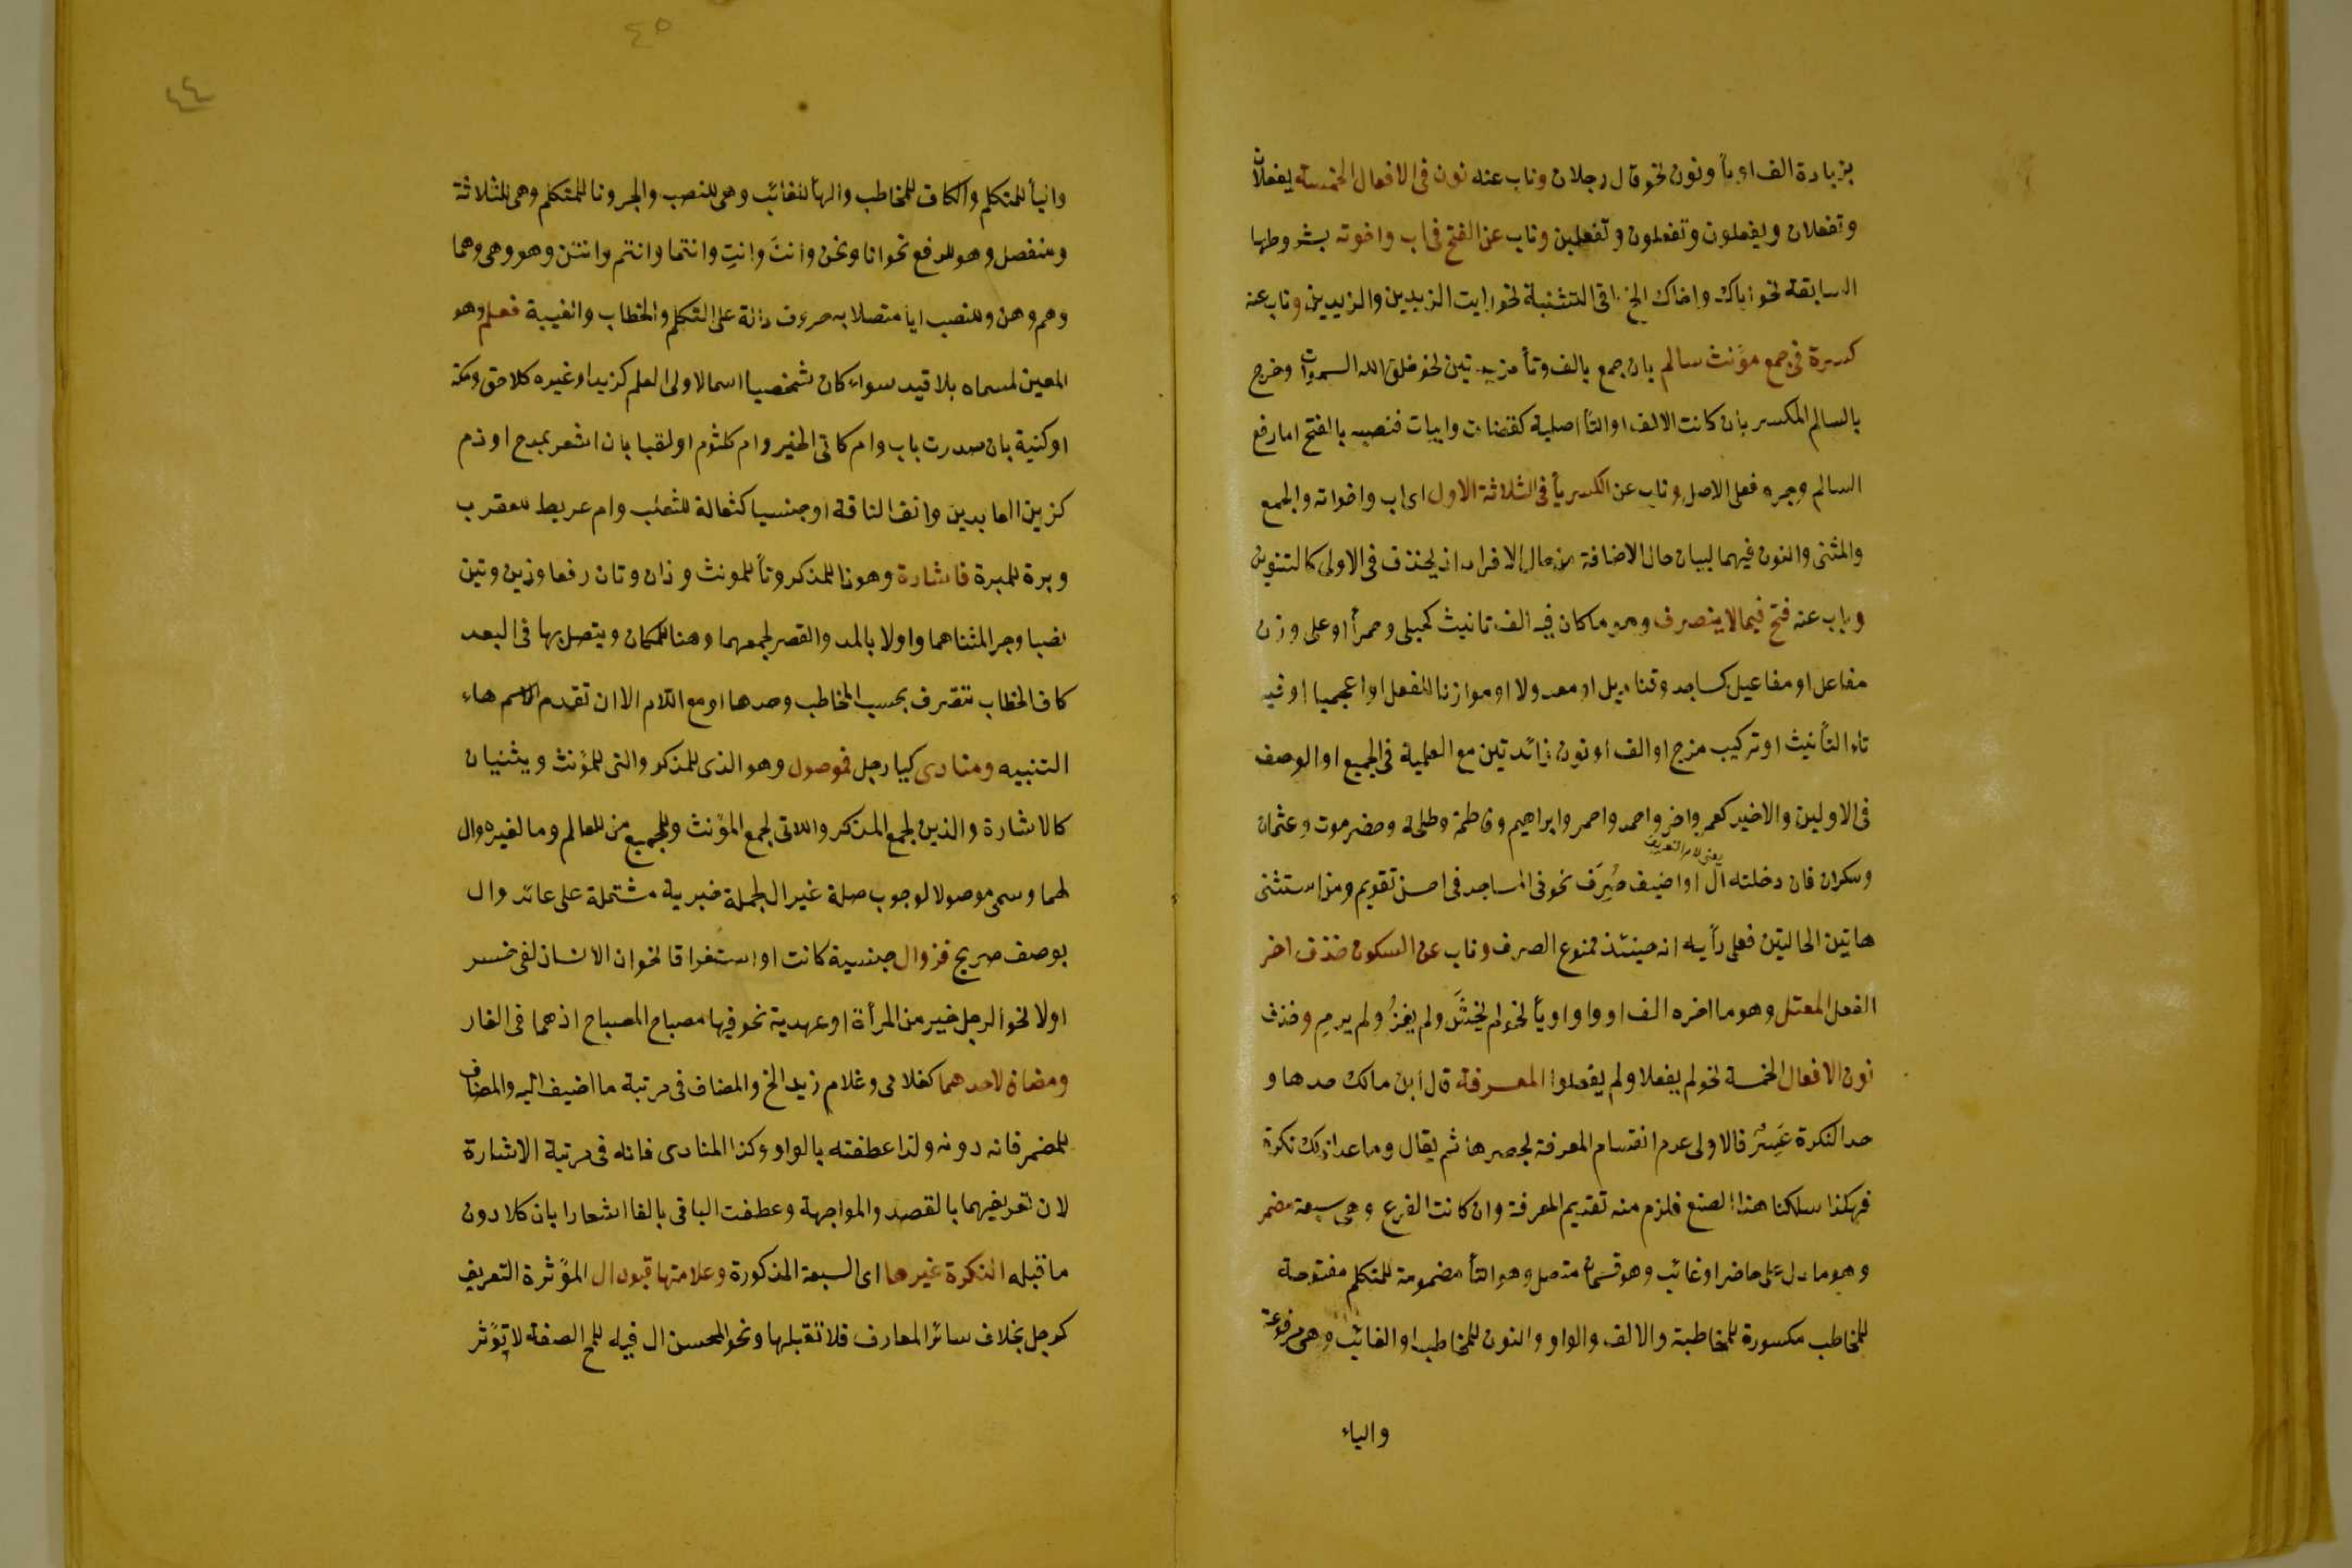 بزيادة الف او يأ ونون نحو قال رجلان وناب عنه نون فى الافعال الخمسة يفعلان
وتفعلان ويفعلون وتفعلون وتفعلين وناب عن الفتح فى اب واخوته بشروطها
السابقة نحو اباك واخاك الخ التثنية نحو رايت الزيدين والزيدين وناب عنه
كسرة فى جمع مؤنث سالم بان جمع بالف وتأ مزيدتين نحو خلق الله السموات وخرج
بالسالم المكسر بان كانت الالف او التأ اصلية كقضات وابيات فنصبه بالفتح اما رفع
السالم وجره فعلى الاصل وناب عن الكسر يأ فى الثلاثة الاول اى اب واخواته والجمع
والمثنى والنون فيهما لبيان حال الاضافة من حال الافراد اذ يحذف فى الاولى كالتنوين
وناب عنه فتح فيما لا ينصرف وهو ما كان فيه الف تانيث كحبلى وحمرأ او على وزن
مفاعل او مفاعيل كمساجد وقناديل او معدولا او موازنا للفعل او اعجميا او فيه
تاء التأنيث او تركيب مزج او الف او نون زائدتين مع العلمية فى الجميع او الوصف
فى الاولين والاخير كعمر واخر واحمد واحمر وابراهيم وفاطمة وطلحة وحضرموت وعثمان
يعنى لام التعريف
وسكران فان دخلته ال او اضيف صُرِفَ نحو فى المساجد فى احسن تقويم ومن استثنى
هاتين الحالتين فعلى رأيه انه حينئذ ممنوع الصرف وناب عن السكون حذف اخر
الفعل المعتل وهو ما اخره الف او واو او يأ نحو لم يخشَ ولم يغزُ ولم يرمِ وحذف
نون الافعال الخمسة نحو لم يفعلا ولم يفعلوا المعرفة قال ابن مالك حدها و
حد النكرة عَسِرٌ فالاولى عدم انقسام المعرفة لحصرها ثم يقال وما عدا ذلك نكرة
فهكذا سلكنا هذا الصنع فلزم منه تقديم المعرفة وان كانت الفرع وهى سبعة مضمر
وهو ما دل على حاضر او غائب وهو قسمان متصل وهو التأ مضمومة للمتكلم مفتوحة
للمخاطب مكسورة للمخاطبة والالف والواو والنون للمخاطب او الغائب وهى مرفوعة
والياء
٤٥
٤٤
واليأ للمتكلم والكاف للمخاطب والهأ للغائب وهى للنصب والجر ونا للمتكلم وهى للثلاثة
ومنفصل وهو للرفع نحو انا ونحن وانتَ وانتِ وانتما وانتم وانتن وهو وهى وهما
وهم وهن وللنصب ايا متصلا به حروف دالة على التكلم والخطاب والغيبة فعلم وهو
المعين لمسماه بلا قيد سواء كان شخصيا اسما لاولى العلم كزيد او غيره كلاحق ومكة
او كنية بان صدرت باب وام كابى الخير وام كلثوم او لقبا بان اشعر بمدح او ذم
كزين العابدين وانف الناقة او جنسيا كثعالة للثعلب وام عريط للعقرب
وبرة للمبرة فاشارة وهو ذا للمذكر وتأ للمونث وذان وتان رفعا وذين وتين
نصبا وجرا لمثناهما واولا بالمد والقصر لجمعهما وهنا للمكان ويتصل بها فى البعد
كاف الخطاب تتصرف بحسب المخاطب وحدها او مع اللام الا ان تقدم الاسم هاء
التنبيه ومنادى كيا رجل فموصول وهو الذى للمذكر والتى للمؤنث ويثنيان
كالاشارة والذين لجمع المذكر واللاتى لجمع المؤنث وللجميع من للعالم وما لغيره وال
لهما وسمى موصولا لوجوب صلة غير ال بجملة خبرية مشتملة على عائد وال
بوصف صريح فذو ال جنسية كانت او استغراقا نحو ان الانسان لفى خسر
اولا نحو الرجل خير من المرأة او عهدية نحو فيها مصباح المصباح اذ هما فى الغار
ومضاف لاحدهما كغلامى وغلام زيد الخ والمضاف فى مرتبة ما اضيف اليه والمضاف
للمضمر فانه دونه ولذا عطفته بالواو وكذا المنادى فانه فى مرتبة الاشارة
لان تعريفهما بالقصد والمواجهة وعطفت الباقى بالفا اشعارا بان كلا دون
ما قبله النكرة غيرها اى السبعة المذكورة وعلامتها قبول ال المؤثرة التعريف
كرجل بخلاف سائر المعارف فلا تقبلها ونحو المحسن ال فيه للمح الصفة لا تؤثر